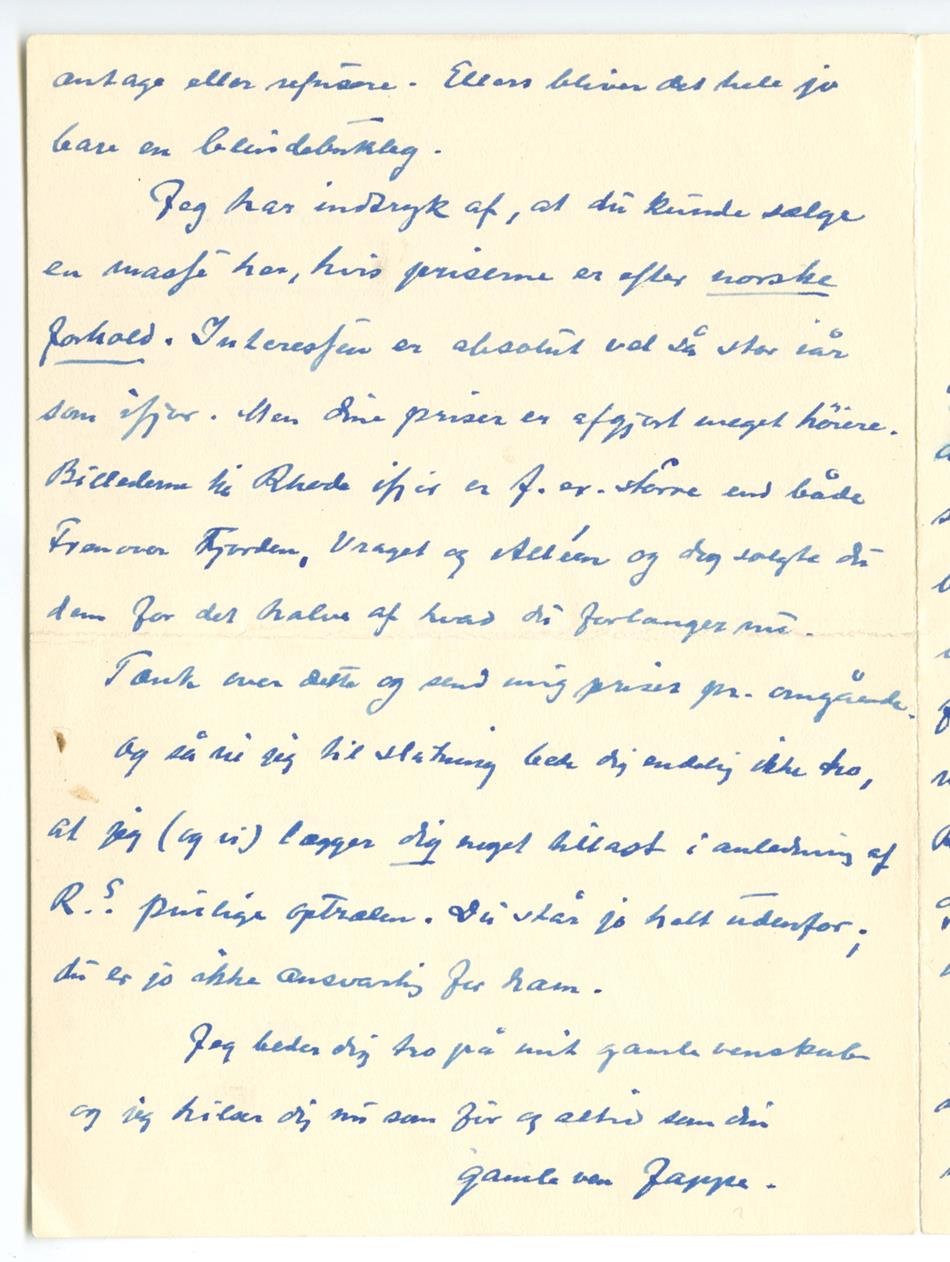 antage eller refüsere. Ellers bliver det hele jo
bare en blindebukleg.
Jeg har indtryk af, at du kunde sælge
en masse her, hvis priserne er efter norske
forhold. Interessen er absolut vel så stor iår
som ifjor. Men dine priser er afgjort meget höiere.
Billederne til Rhode ifjor er f. ex. större end både
Frem over Fjorden, Vraget og Alléen og dog solgte du
dem for det halve af hvad du forlanger nu.
Tænk over dette og send mig priser pr. omgående.
Og så vil jeg til slutning bede dig endelig ikke tro,
at jeg (og vi) lægger dig noget tillast i anledning af
R.s. pinlige optræden. Du står jo helt udenfor;
du er jo ikke ansvarlig for ham.
Jeg beder dig tro på mit gamle venskab
og jeg hilser dig nu som för og altid som din
gamle ven Jappe.